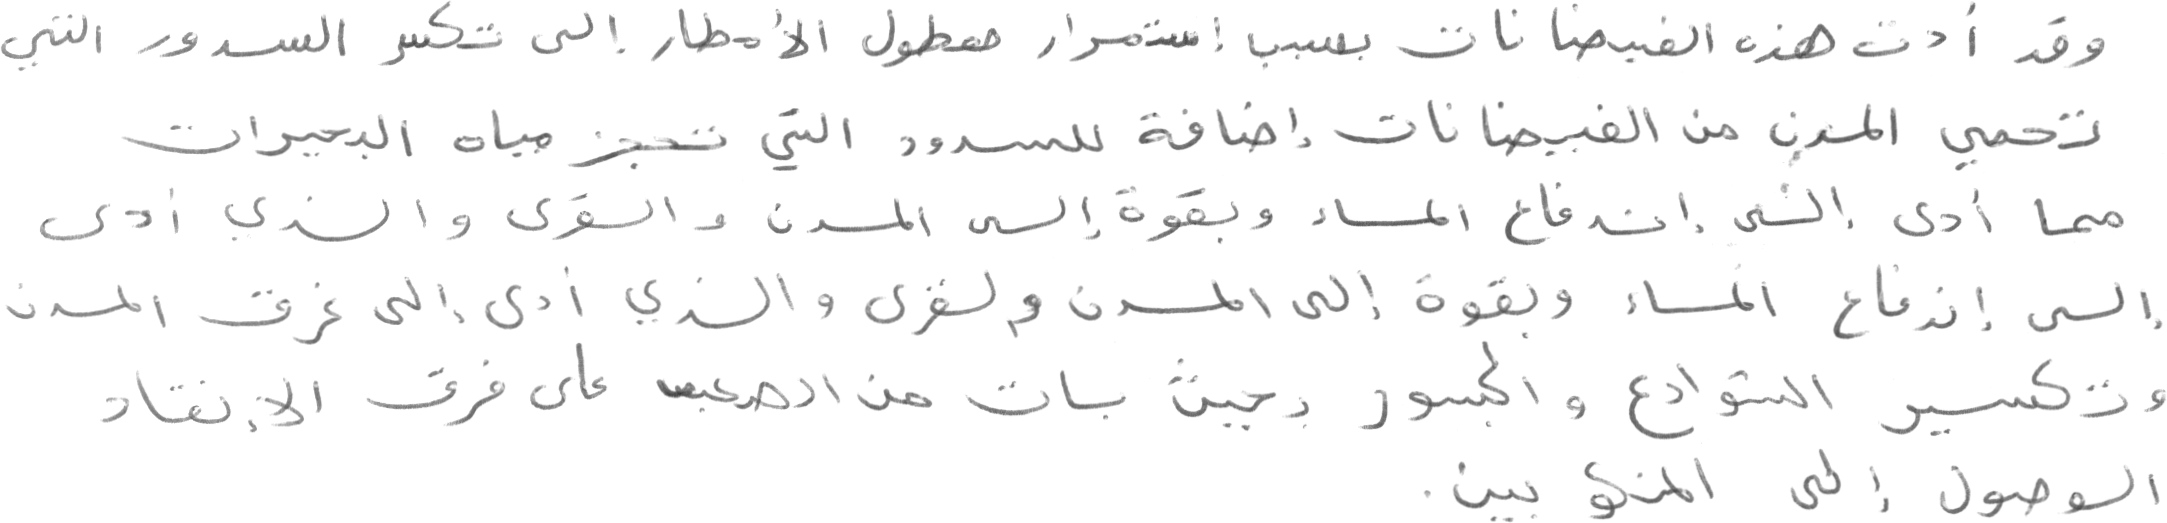 وقد أدت هذه الفيضانات بسبب إستمرار هطول الأمطار إلى تكسر السدود التي
تحمي المدن من الفيضانات إضافة للسدود التي تحجز مياه البحيرات
مما أدى إلى إندفاع الماء وبقوة إلى المدن والقرى والذي أدى
إلى إندفاع الماء وبقوة إلى المدن ولقرى والذي أدى إلى غرق المدن
وتكسير الشوارع والجسور بحيث بات من الصعب على فرق الإنقاذ
الوصول إلى المنكوبين.